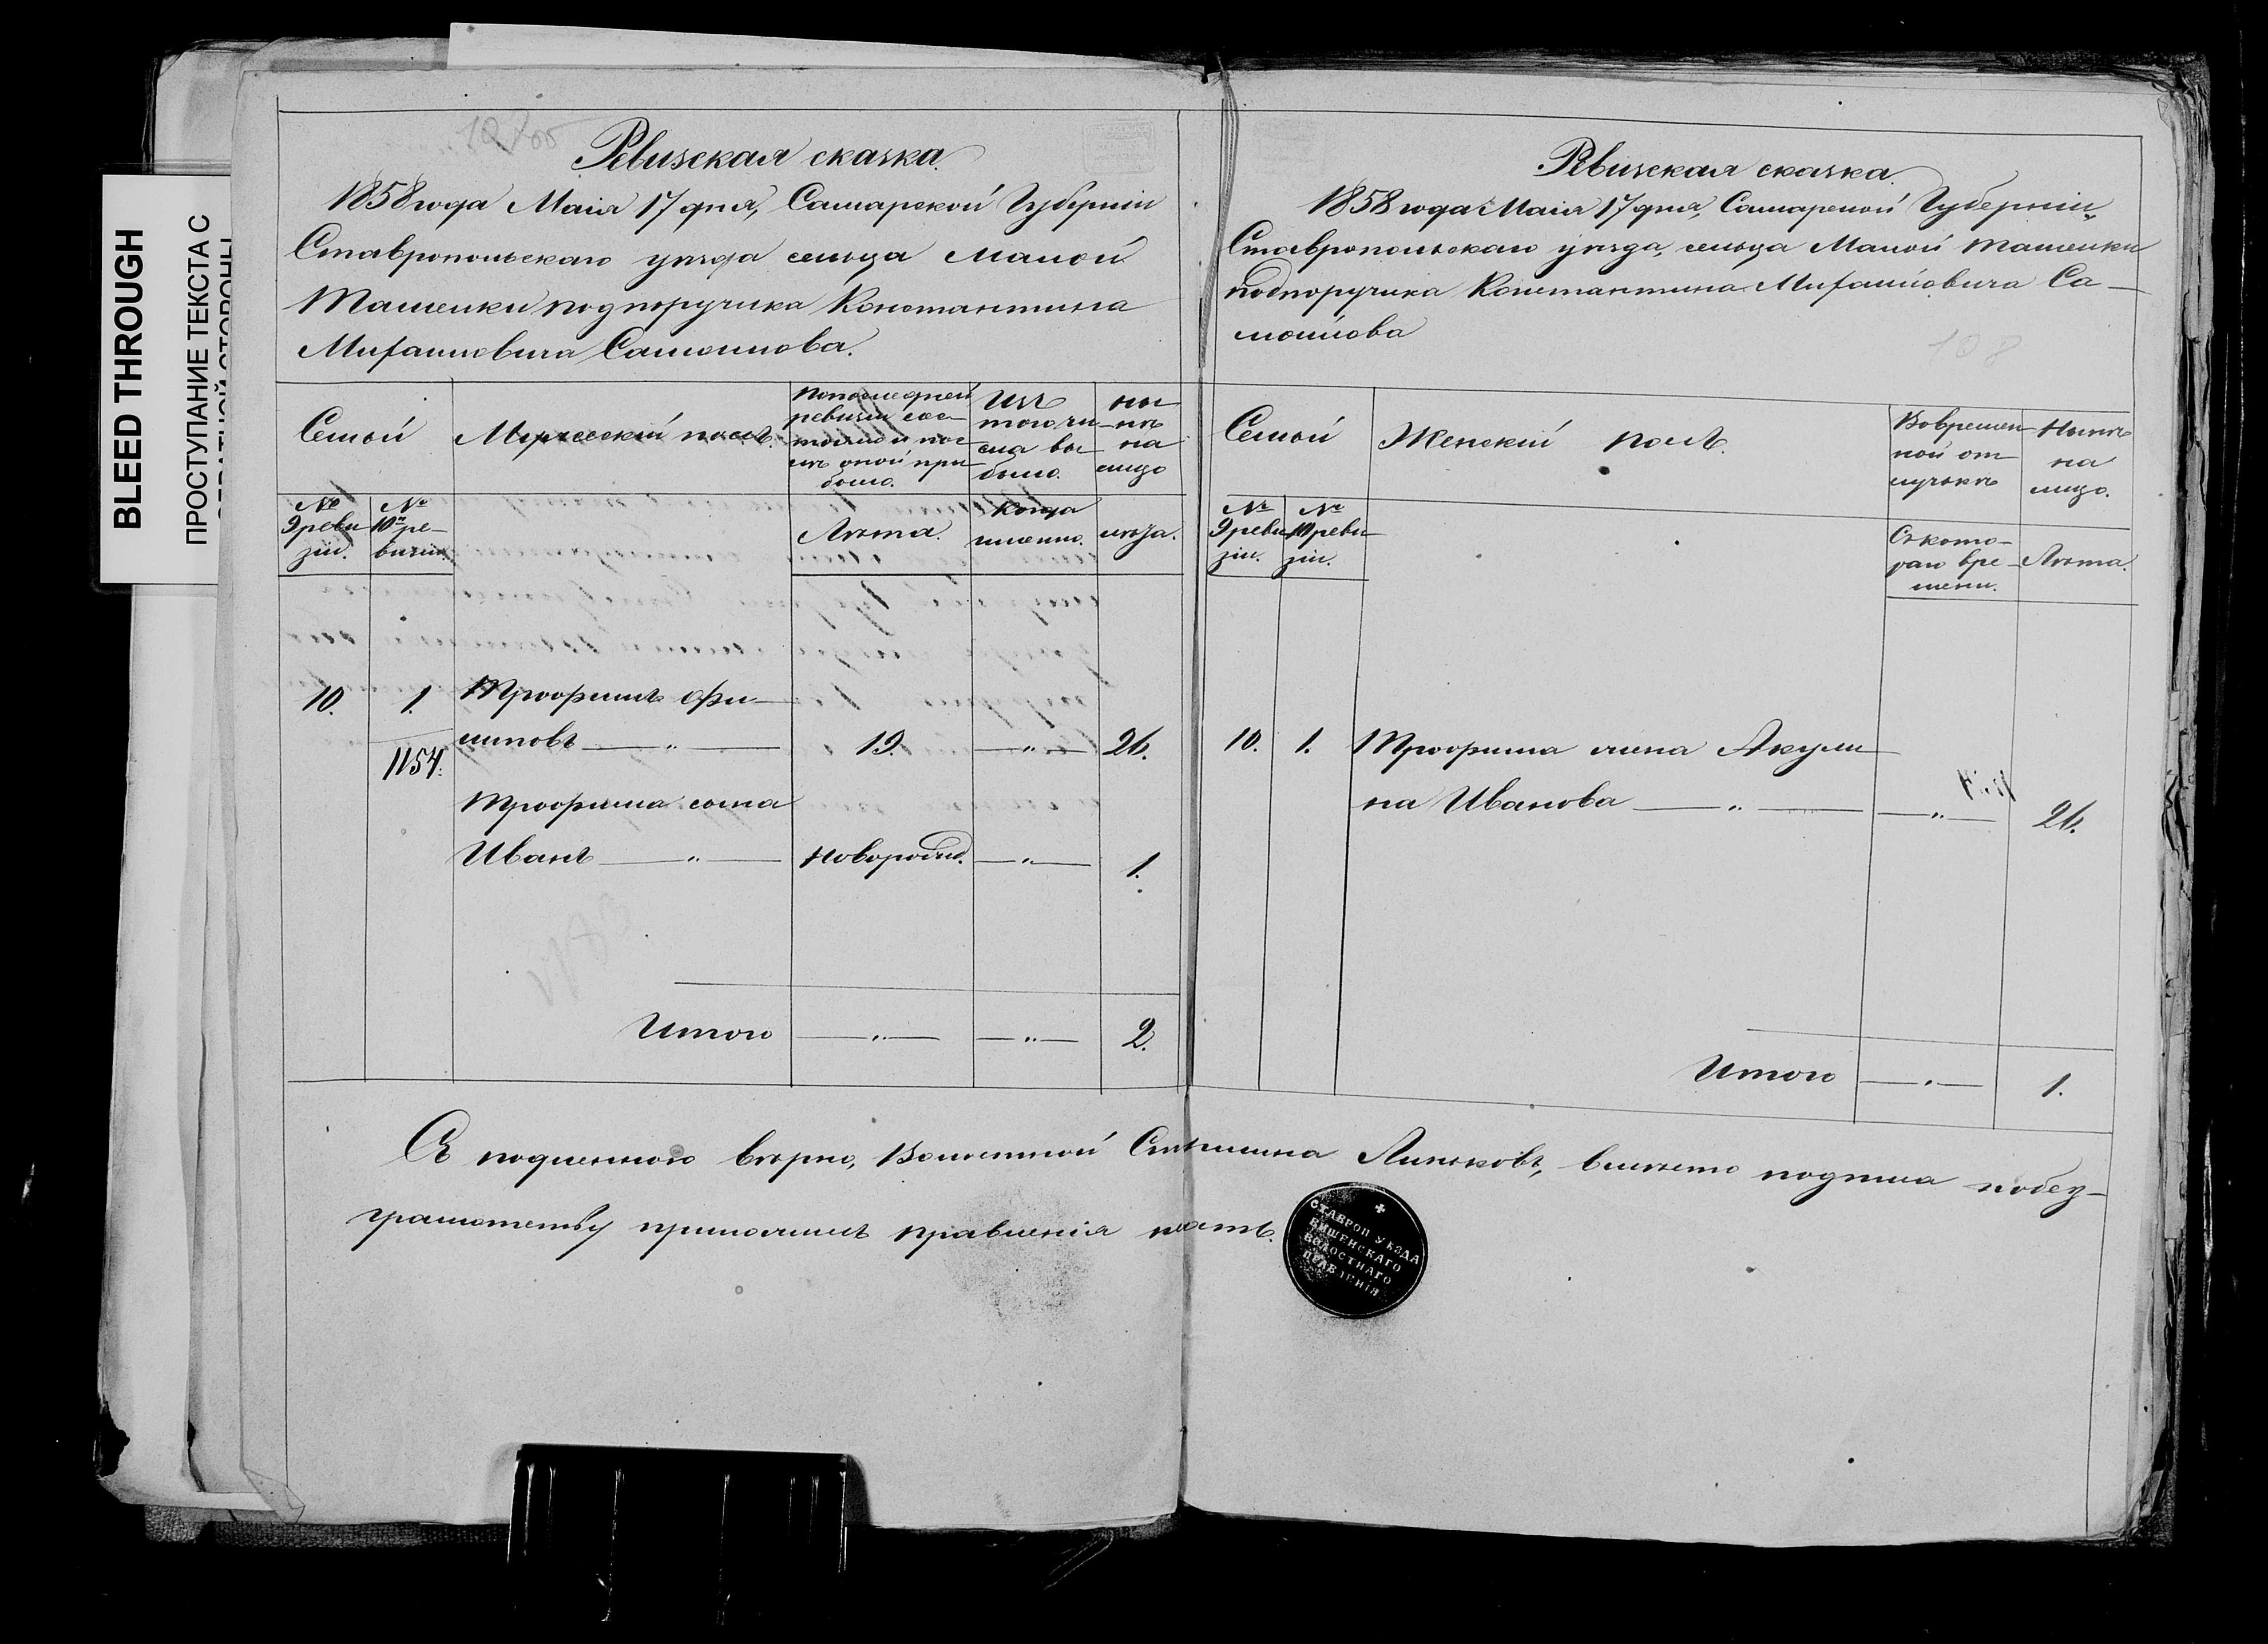 BLEED THROUGH
ПРОСТУПАНИЕ ТЕКСТА С
ОБРАТНОЙ СТОРОНЫ
Ревизская сказка.
1858 года Маія 17 дня, Самарской Губерніи
Ставропольскаго уѣзда сельца малой
Ташелки подпоручика Константина
Михайловича Самойлова.
Семьи
Мужескій полъ.
По последней
ревизіи сос-
тояло и пос-
лѣ оной при-
было.
Изъ
того чи-
сла вы-
было.
ны-
нѣ
на
лицо
№
9 реви
зіи.
№
10й ре-
визіи.
Лѣта.
Когда
именно.
лѣта.
10.
1.
Трофимъ Фи-
липовъ — „ —
19.
— „ —
26.
1154.
Трофима сына
Иванъ — „ —
новорожд.
— „ —
1.
Итого
— „ —
— „ —
2.
Ревизская сказка.
1858 года Маія 17 дня, Самарской Губерніи,
Ставропольскаго уѣзда, сельца Малой Ташелки
подпоручика Константина Михайловича Са-
мойлова
108
Семьи
Женскій полъ.
Вовремен-
ной от-
лучкѣ
Нынѣ
на
лицо.
№
9 реви
зіи.
№
10 реви-
зіи.
Съ кото-
раго вре-
мени.
Лѣта.
10.
1.
Трофима жена Акули-
на Иванова — „ —
— „ —
26.
Итого
— „ —
1.
Съ подленного вѣрно, Волостной Старшина Линьковъ, вместо подписа побез-
грамотству приложилъ правленія печать.
СТАВРОП УѢЗДА
ВИШЕНСКАГО
ВОЛОСТНАГО
ПРАВЛЕНІЯ